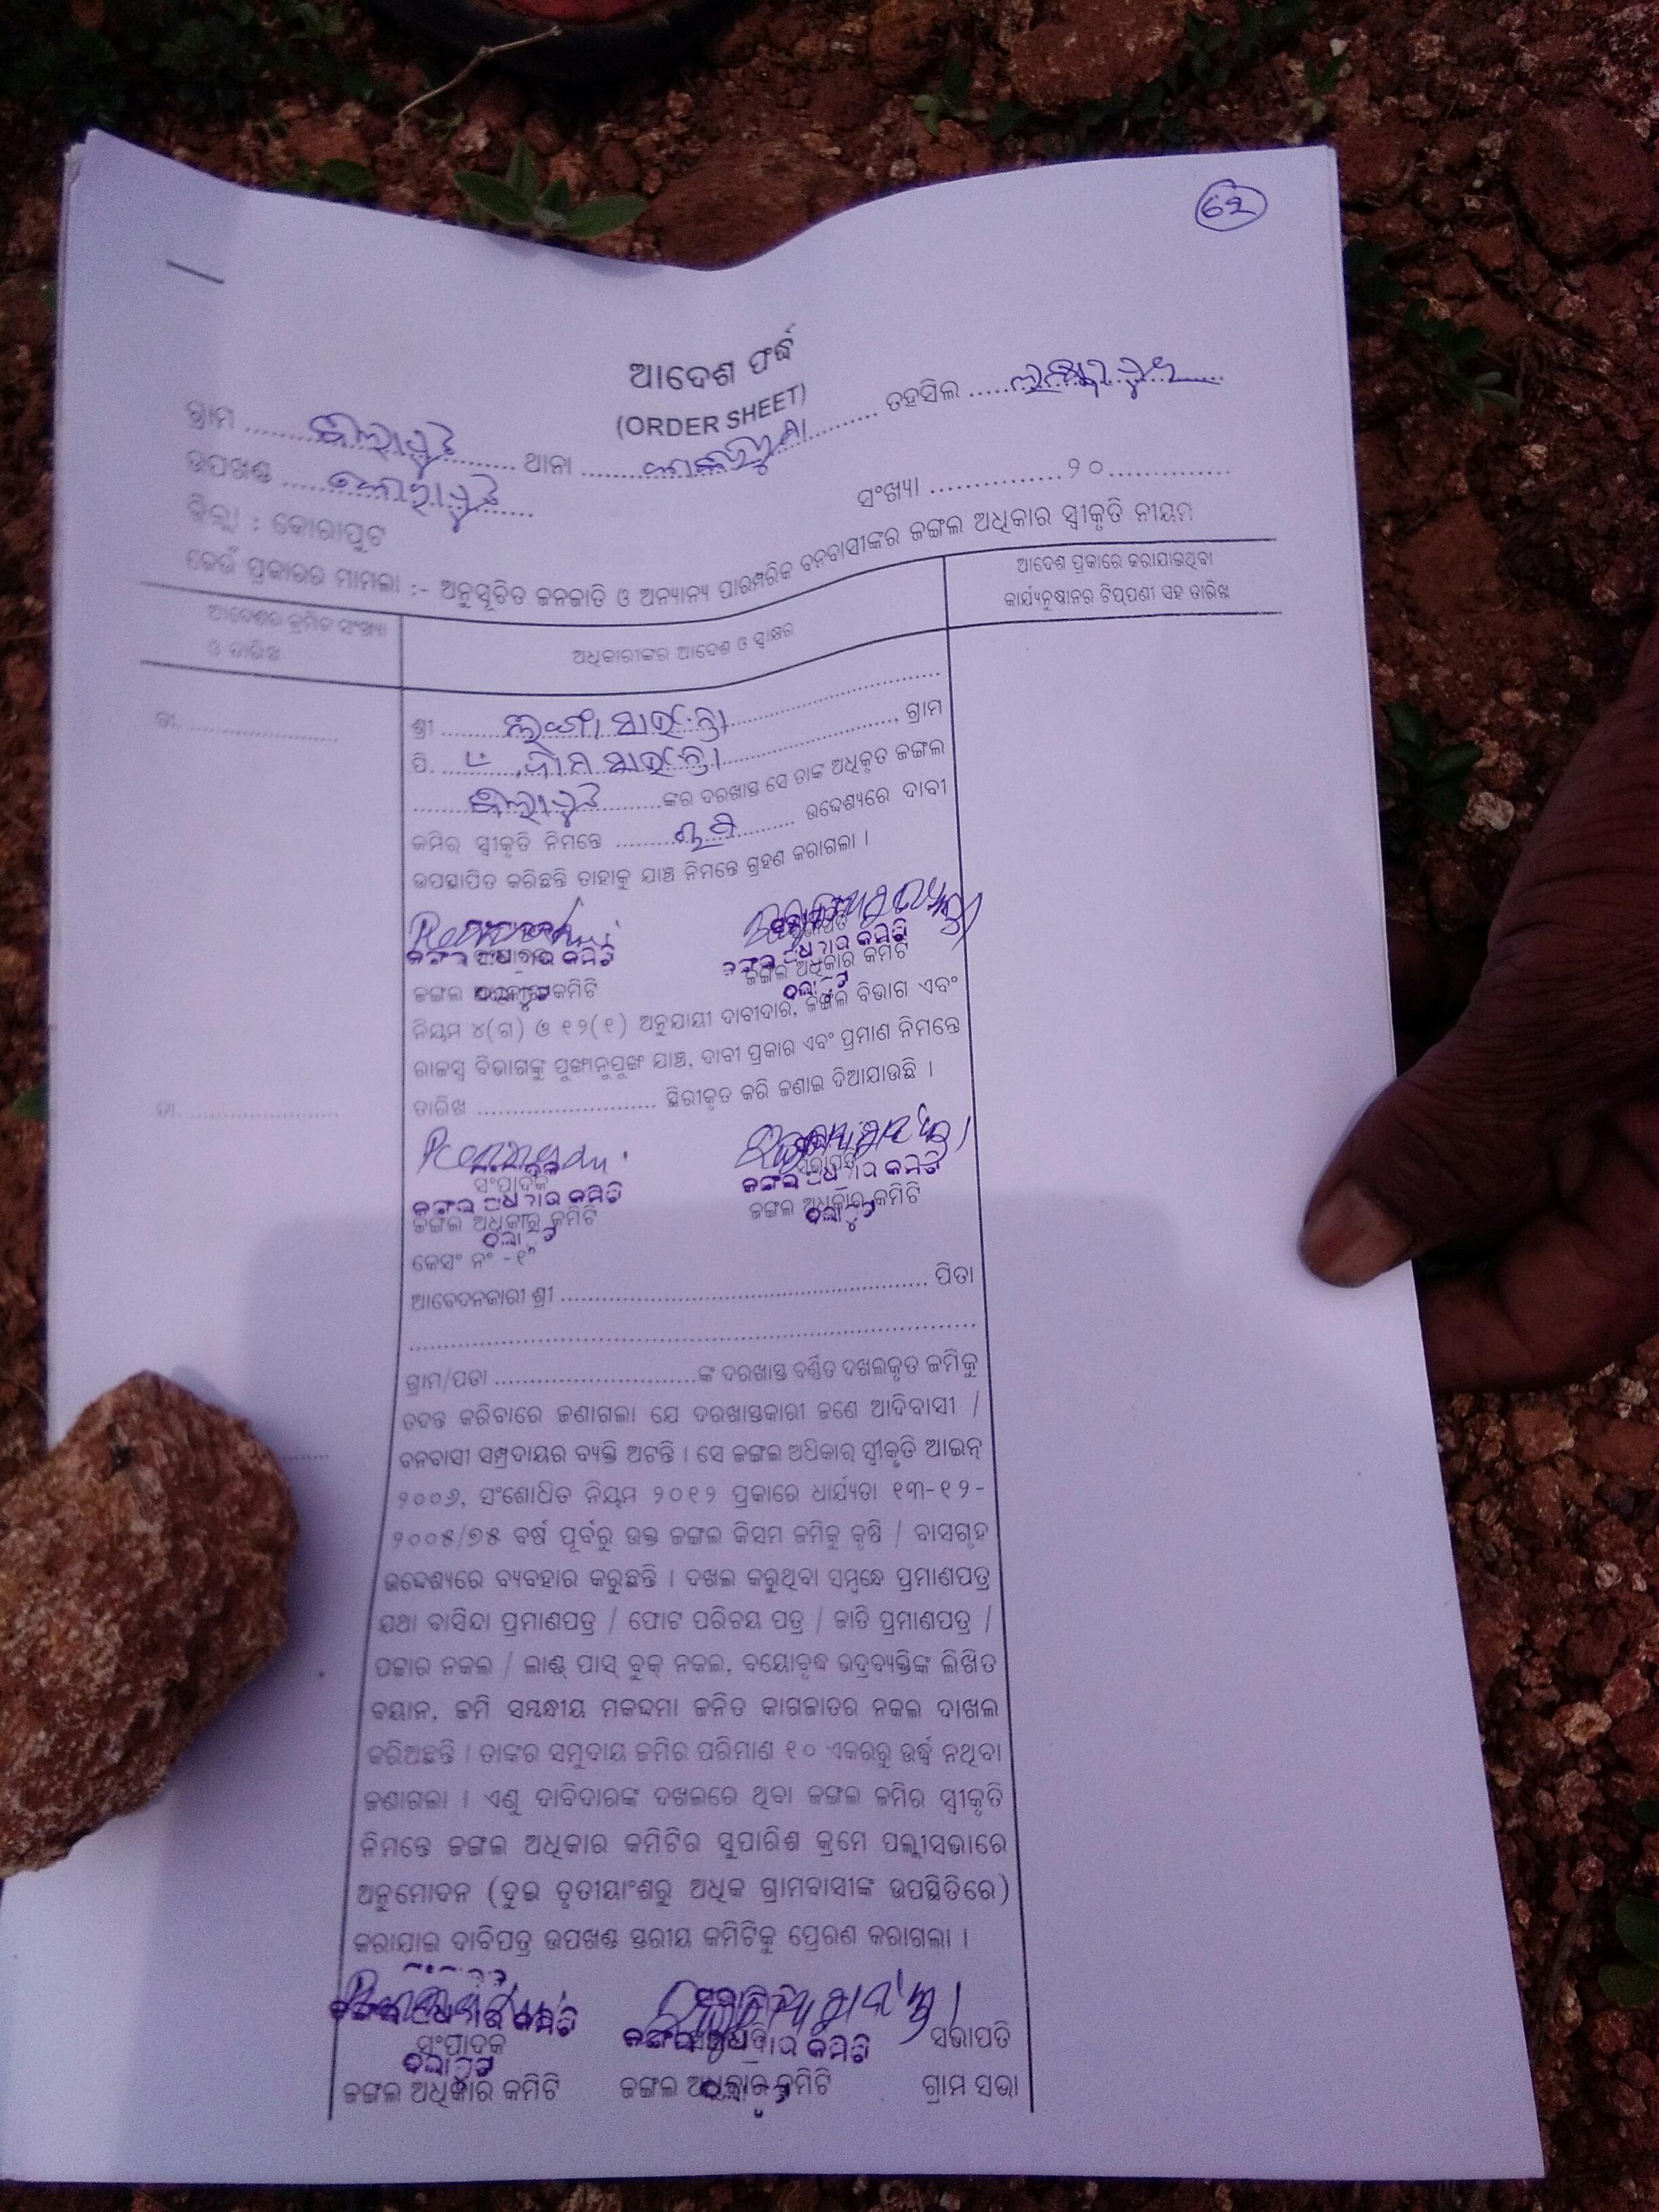 ୬୨
ଆଦେଶ ଫର୍ଦ୍ଦ
(ORDER SHEET)
ଗ୍ରାମ .................... ଥାନା .................... ତହସିଲ ....................
ଉପଖଣ୍ଡ ....................
ସଂଖ୍ୟା ...............୨୦...............
ଜିଲ୍ଲା : କୋରାପୁଟ
କେଉଁ ପ୍ରକାରର ମାମଲା :- ଅନୁସୂଚିତ ଜନଜାତି ଓ ଅନ୍ୟାନ୍ୟ ପାରମ୍ପରିକ ବନବାସୀଙ୍କର ଜଙ୍ଗଲ ଅଧିକାର ସ୍ୱୀକୃତି ନୀୟମ
ଆଦେଶର କ୍ରମିକ ସଂଖ୍ୟା
ଓ ତାରିଖ
ଅଧିକାରୀଙ୍କର ଆଦେଶ ଓ ସ୍ୱାକ୍ଷର
ଆଦେଶ ପ୍ରକାରେ କରାଯାଇଥିବା
କାର୍ଯ୍ୟନୁଷ୍ଠାନର ଟିପ୍ପଣୀ ସହ ତାରିଖ
ତା. ....................
ଶ୍ରୀ ....................
ପି. ...................., ଗ୍ରାମ
....................ଙ୍କର ଦରଖାସ୍ତ ସେ ତାଙ୍କ ଅଧିକୃତ ଜଙ୍ଗଲ
ଜମିର ସ୍ୱୀକୃତି ନିମନ୍ତେ .................... ଉଦ୍ଦେଶ୍ୟରେ ଦାବୀ
ଉପସ୍ଥାପିତ କରିଛନ୍ତି ତାହାକୁ ଯାଞ୍ଚ ନିମନ୍ତେ ଗ୍ରହଣ କରାଗଲା ।
ଜଙ୍ଗଲ ଅଧିକାର କମିଟି
ଜଙ୍ଗଲ ଅଧିକାର କମିଟି
ନିୟମ ୪(ଗ) ଓ ୧୨(୧) ଅନୁଯାୟୀ ଦାବୀଦାର, ଜଙ୍ଗଲ ବିଭାଗ ଏବଂ
ରାଜସ୍ୱ ବିଭାଗଙ୍କୁ ପୁଙ୍ଖାନୁପୁଙ୍ଖ ଯାଞ୍ଚ, ଦାବୀ ପ୍ରକାର ଏବଂ ପ୍ରମାଣ ନିମନ୍ତେ
ତା. ....................
ତାରିଖ .................... ସ୍ଥିରୀକୃତ କରି ଜଣାଇ ଦିଆଯାଉଛି ।
ସଂପାଦକ
ସଭାପତି
ଜଙ୍ଗଲ ଅଧିକାର କମିଟି
ଜଙ୍ଗଲ ଅଧିକାର କମିଟି
କେସଂ ନଂ -୧
ଆବେଦନକାରୀ ଶ୍ରୀ .................... ପିତା
....................
ଗ୍ରାମ/ପଡା ....................ଙ୍କ ଦରଖାସ୍ତ ବର୍ଣ୍ଣିତ ଦଖଲକୃତ ଜମିକୁ
ତଦନ୍ତ କରିବାରେ ଜଣାଗଲା ଯେ ଦରଖାସ୍ତକାରୀ ଜଣେ ଆଦିବାସୀ /
ବନବାସୀ ସମ୍ପ୍ରଦାୟର ବ୍ୟକ୍ତି ଅଟନ୍ତି । ସେ ଜଙ୍ଗଲ ଅଧିକାର ସ୍ୱୀକୃତି ଆଇନ୍
୨୦୦୬, ସଂଶୋଧିତ ନିୟମ ୨୦୧୨ ପ୍ରକାରେ ଧାର୍ଯ୍ୟତା ୧୩-୧୨-
୨୦୦୫/୭୫ ବର୍ଷ ପୂର୍ବରୁ ଉକ୍ତ ଜଙ୍ଗଲ କିସମ ଜମିକୁ କୃଷି / ବାସଗୃହ
ଉଦ୍ଦେଶ୍ୟରେ ବ୍ୟବହାର କରୁଛନ୍ତି । ଦଖଲ କରୁଥିବା ସମ୍ବନ୍ଧେ ପ୍ରମାଣପତ୍ର
ଯଥା ବାସିନ୍ଦା ପ୍ରମାଣପତ୍ର / ଫୋଟ ପରିଚୟ ପତ୍ର / ଜାତି ପ୍ରମାଣପତ୍ର /
ପଟ୍ଟାର ନକଲ / ଲାଣ୍ଡ୍ ପାସ୍ ବୁକ୍ ନକଲ, ବୟୋବୃଦ୍ଧ ଭଦ୍ରବ୍ୟକ୍ତିଙ୍କ ଲିଖିତ
ବୟାନ, ଜମି ସମ୍ବନ୍ଧୀୟ ମକଦ୍ଦମା ଜନିତ କାଗଜାତର ନକଲ ଦାଖଲ
କରିଅଛନ୍ତି । ତାଙ୍କର ସମୁଦାୟ ଜମିର ପରିମାଣ ୧୦ ଏକରରୁ ଉର୍ଦ୍ଧ୍ୱ ନଥିବା
ଜଣାଗଲା । ଏଣୁ ଦାବିଦାରଙ୍କ ଦଖଲରେ ଥିବା ଜଙ୍ଗଲ ଜମିର ସ୍ୱୀକୃତି
ନିମନ୍ତେ ଜଙ୍ଗଲ ଅଧିକାର କମିଟିର ସୁପାରିଶ କ୍ରମେ ପଲ୍ଲୀସଭାରେ
ଅନୁମୋଦନ (ଦୁଇ ତୃତୀୟାଂଶରୁ ଅଧିକ ଗ୍ରାମବାସୀଙ୍କ ଉପସ୍ଥିତିରେ)
କରାଯାଇ ଦାବିପତ୍ର ଉପଖଣ୍ଡ ସ୍ତରୀୟ କମିଟିକୁ ପ୍ରେରଣ କରାଗଲା ।
ସଂପାଦକ
ସଭାପତି
ଜଙ୍ଗଲ ଅଧିକାର କମିଟି
ଜଙ୍ଗଲ ଅଧିକାର କମିଟି
ଗ୍ରାମ ସଭା